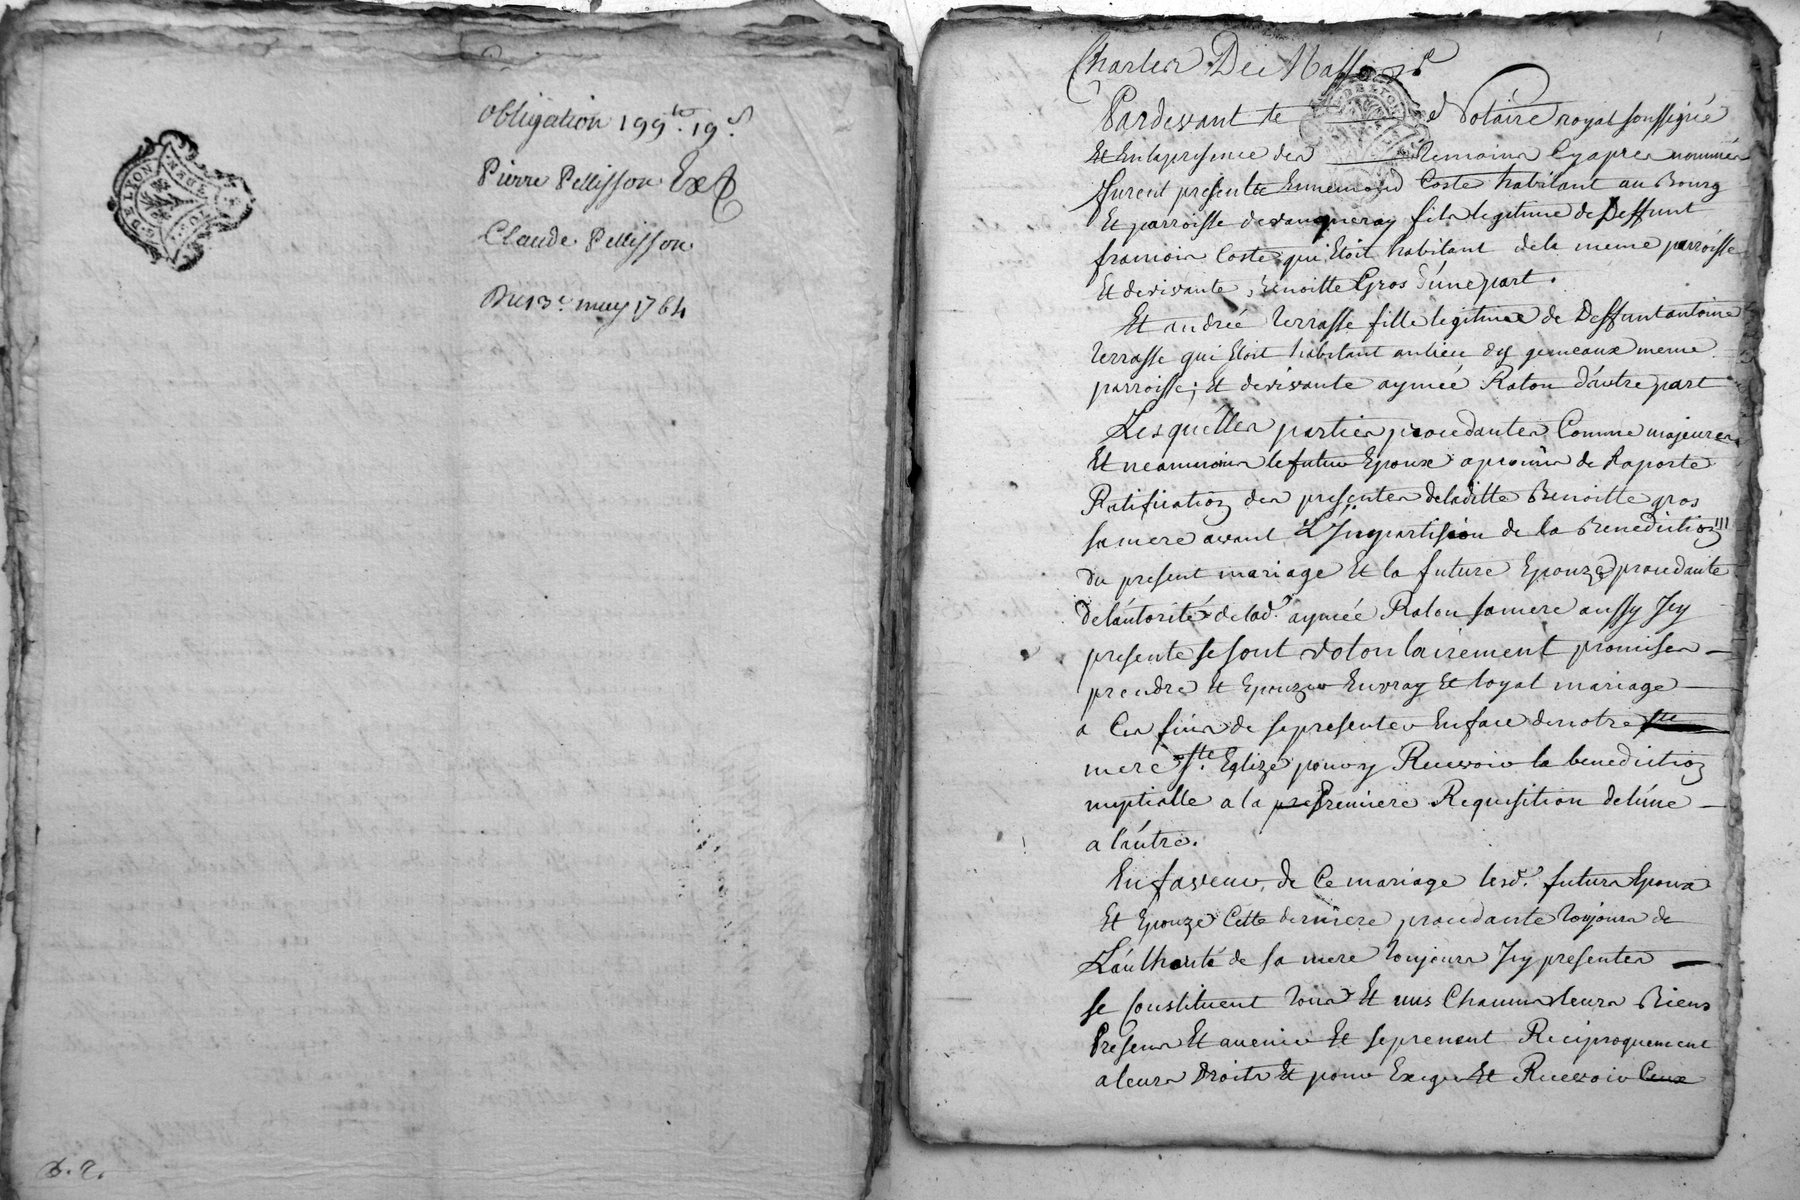 DELYON
GDELYON
obligation 199lt. 19s
Pierre Pellisson
Claude Pellisson
Du 13e. may 1764
Charles De
Pardevant le Notaire royal soussigné
Et En la presence des temoins Cy apres nommés
furent presents Ennemond Coste habitant au Bourg
Et parroisse de vaugneray fils legitime de Deffunt
francois Coste qui Etoit habitant de la meme parroisse
Et de vivante Benoitte Gros d'une part.
Et andrée terrasse fille legitime de Deffunt antoine
terrasse qui Etoit habitant au lieu des gemeaux meme
parroisse; Et de vivante aymée Raton d'autre part
Lesquelles parties procedantes Comme majeures
Et neanmoins le futur Epoux a promis de Raporte
Ratification des presentes de laditte Benoitte gros
sa mere avant L'Impartision de la Benediction
du present mariage Et la future Epouze procedante
de l'autorité de lad. aymée Raton sa mere aussy Icy
presente se sont volontairement promises
prendre Et Epouzer En vray Et loyal mariage
a Ces fins de se presenter En face de notre ste
mere ste. Eglize pour y Recevoir la benediction
nuptialle a la pre Premiere Requisition de l'une
a l'autre.
En faveur de Ce mariage lesd. futurs Epoux
Et Epouze Cette derniere procedante toujours de
L'authorité de sa mere toujours Icy presentes
se Constituent tous Et uns Chacuns leurs Biens
Presens Et avenir Et se prenent Reciproquement
a leurs Droits Et pour Exiger Et Recevoir Ceux